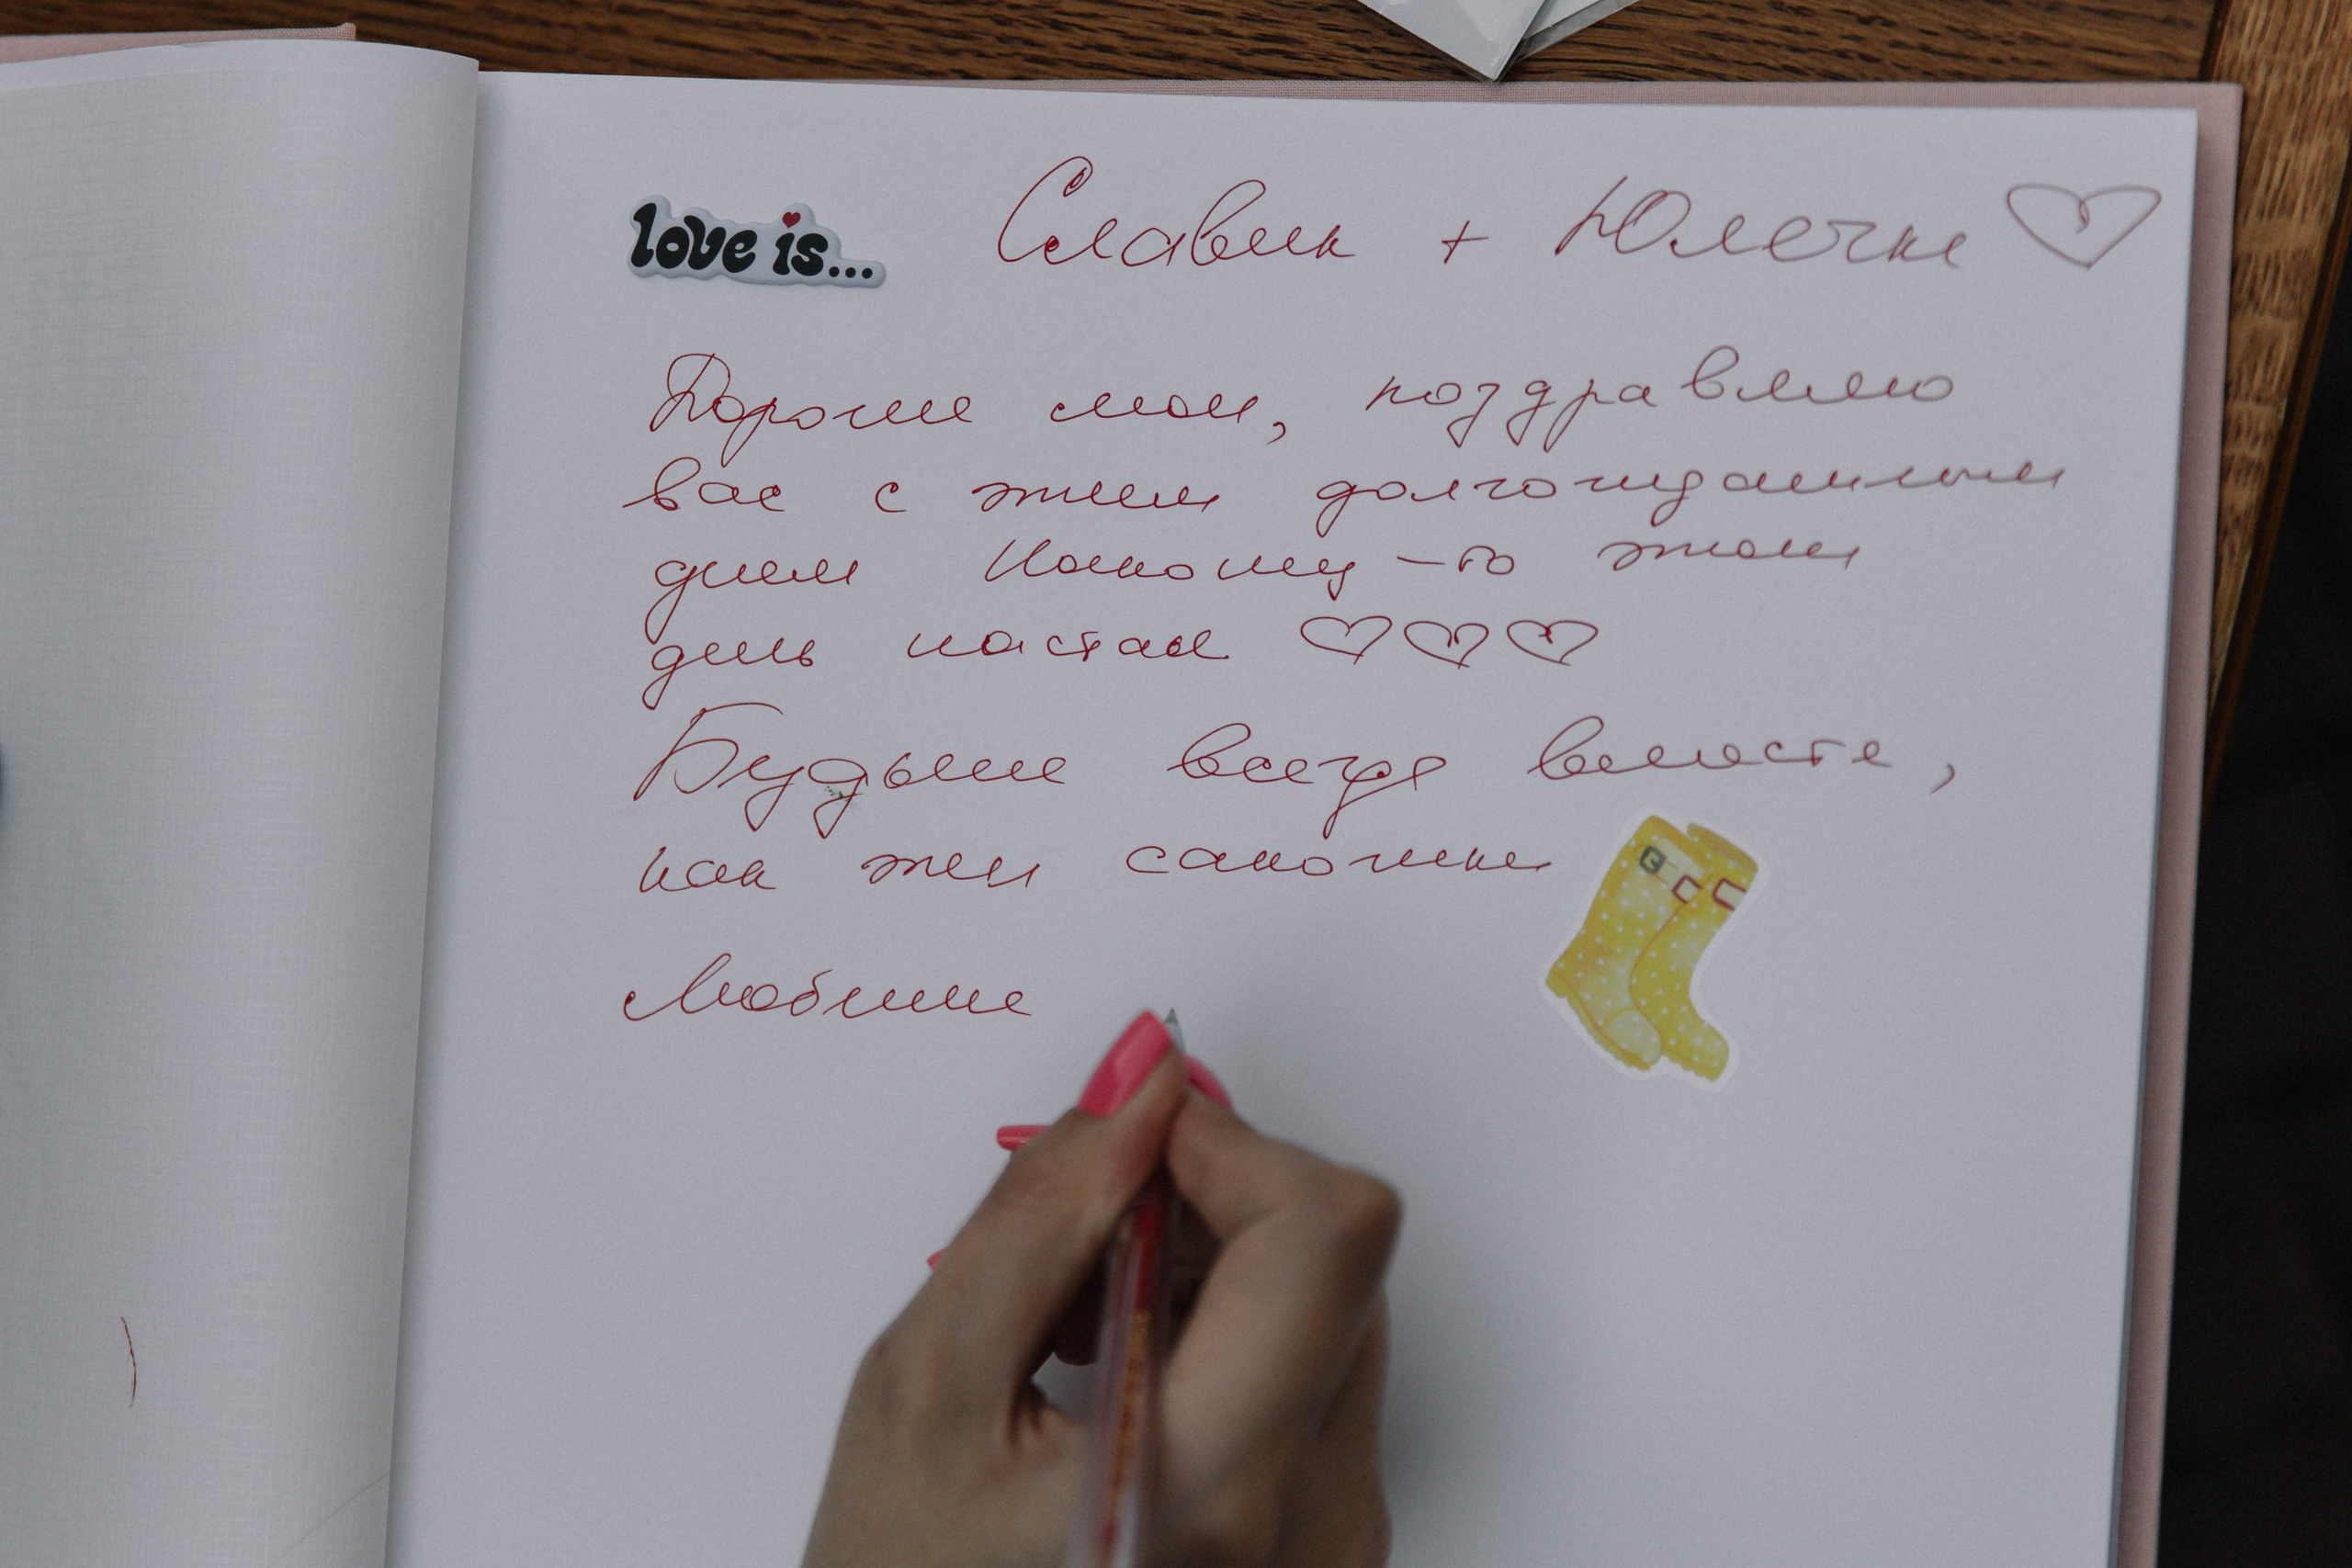 love is... Славик + Юлечка ♡
Дорогие мои, поздравляю
вас с этим долгожданным
днем Наконец-то этот
день настал ♡♡♡
Будьте всегда вместе,
как эти сапожки
Любите